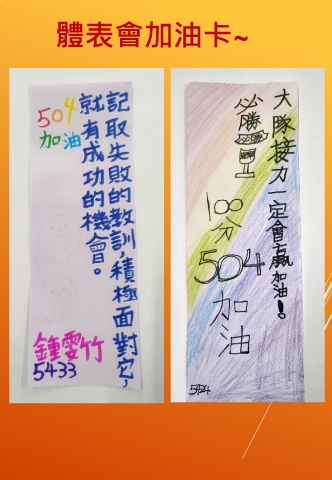 體表會加油卡~
記取失敗的教訓，積極面對它，
就有成功的機會。
504
加油
鍾雯竹
5433
大隊接力一定會贏加油！
必勝
100
分
504
加油